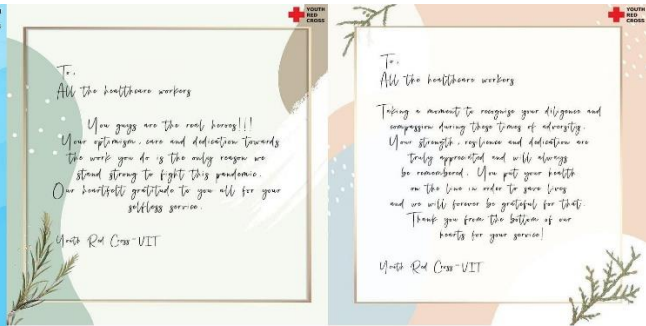 YOUTH
RED
CROSS
To,
All the healthcare workers
You guys are the real heroes!!!
Your optimism, care and dedication towards
the work you do is the only reason we
stand strong to fight this pandemic.
Our heartfelt gratitude to you all for your
selfless service.
Youth Red Cross-VIT
YOUTH
RED
CROSS
To,
All the healthcare workers
Taking a moment to recognise your diligence and
compassion during these times of adversity.
Your strength, resilience and dedication are
truly appreciated and will always
be remembered. You put your health
on the line in order to save lives
and we will forever be grateful for that.
Thank you from the bottom of our
hearts for your service!
Youth Red Cross-VIT